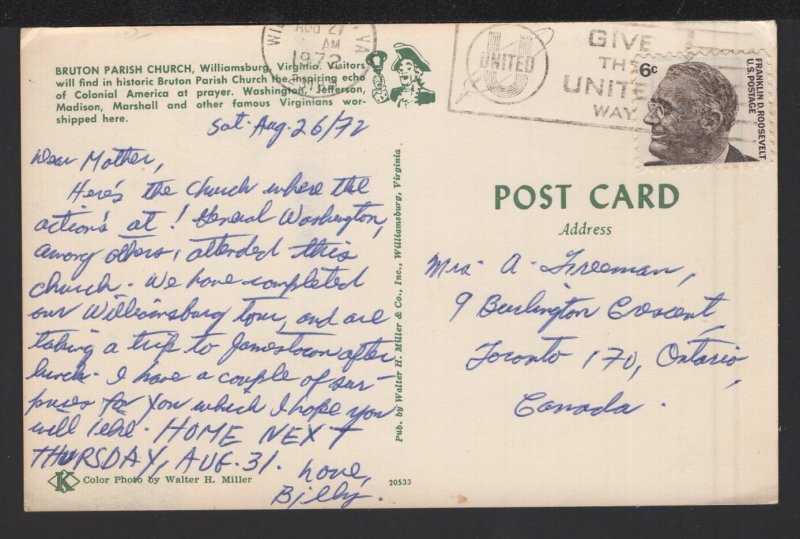 BRUTON PARISH CHURCH, Williamsburg, Virginia. Visitors
will find in historic Bruton Parish Church the inspiring echo
of Colonial America at prayer. Washington, Jefferson,
Madison, Marshall and other famous Virginians wor-
shipped here.
Sat. Aug. 26/72
Dear Mother,
Here's the church where the
action's at! General Washington,
among others, attended this
church. We have completed
our Williamsburg tour, and are
taking a trip to Jamestown after
lunch. I have a couple of sur-
prises for you which I hope you
will like. HOME NEXT
THURSDAY, AUG. 31.
Love,
Billy.
K
Color Photo by Walter H. Miller
20533
Pub. by Walter H. Miller & Co., Inc., Williamsburg, Virginia
AUG 27
AM
1972
VA
UNITED
GIVE
THE
UNITED
WAY
6c
FRANKLIN D. ROOSEVELT
U.S. POSTAGE
POST CARD
Address
Mrs. A. Freeman,
9 Burlington Crescent,
Toronto 170, Ontario,
Canada.